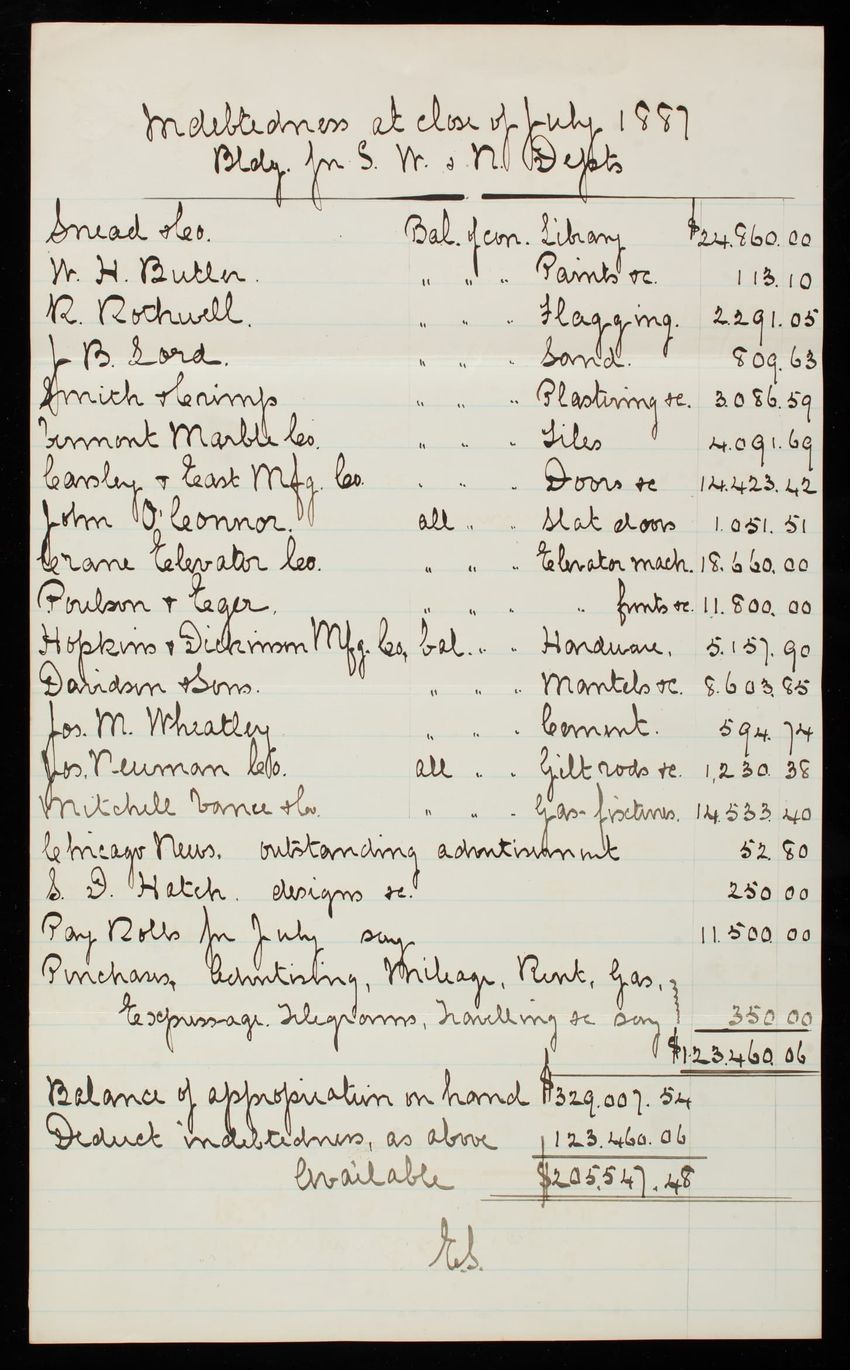 Indebtedness at close of July 1887
Bldg. for S. W. & N. Depts
Snead & Co. Bal. of con. Library $24.860.00
W. H. Butler. " " " Paints &c. 113.10
R. Rothwell. " " " Flagging. 2.291.05
J B. Lord. " " " Sand. 809.63
Smith & Crimp " " " Plastering &c. 3.086.59
Vermont Marble Co. " " " Tiles 4.091.69
Carsley & East Mfg. Co. " " " Doors &c 14.423.42
John O'Connor. all " " Slat doors 1.051.51
Crane Elevator Co. " " " Elevator mach. 18.660.00
Poulson & Eger. " " " " fronts &c. 11.800.00
Hopkins & Dickinson Mfg. Co, bal. " " Hardware. 5.157.90
Davidson & Sons. " " " Mantels &c. 8.603.85
Jos. M. Wheatley " " " Cement. 594.74
Jos. Neuman Co. all " " Gilt rods &c. 1,230.38
Mitchell Vance & Co. " " " Gas-fixtures. 14.533.40
Chicago News. outstanding advertisement 52.80
S. D. Hatch. designs &c. 250 00
Pay Rolls for July say 11.500 00
Purchases, Advertising, Mileage, Rent, Gas,
Expressage. Telegrams, Travelling &c say 350 00
$123.460.06
Balance of appropriation on hand $329.007.54
Deduct indebtedness, as above 123.460.06
Available $205.547.48
E.S.